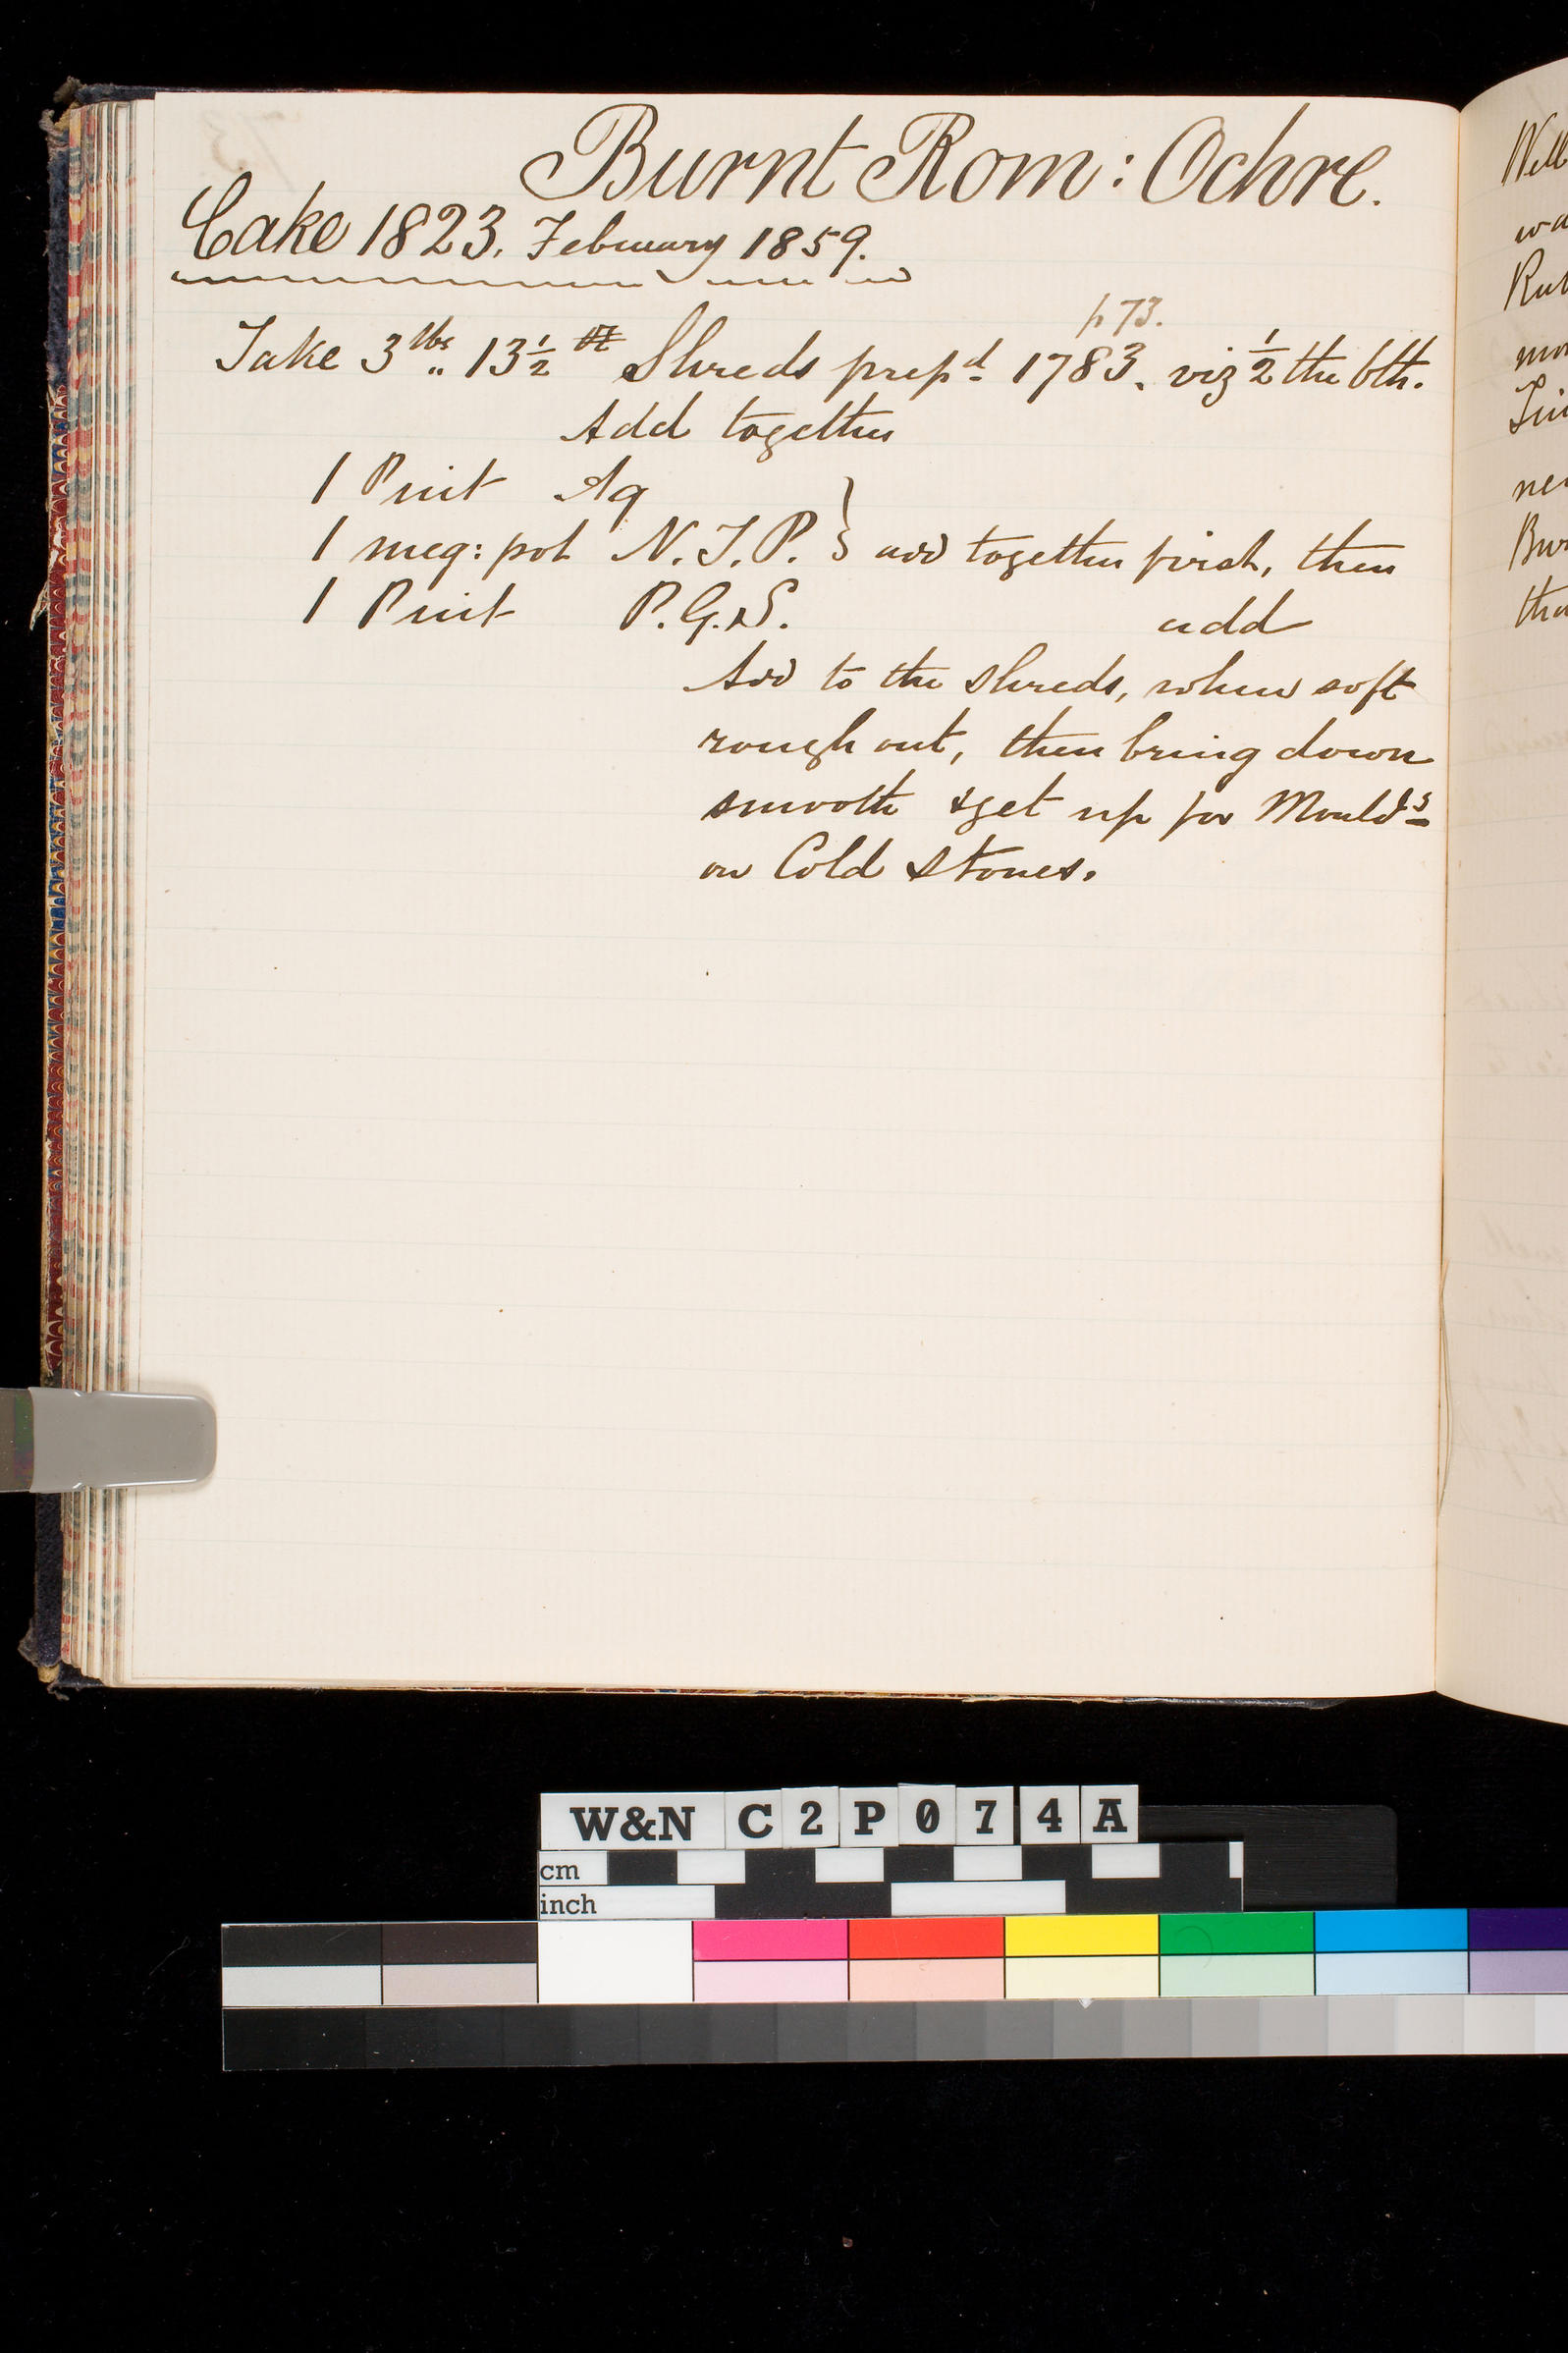 Burnt Rom: Ochre.
Cake 1823. February 1859.
p 73.
Take 3 lbs „ 13½ Shreds prepd 1783. viz ½ the bth.
Add together
1 Pint Aq
1 meg: pot N.T.P. } add together first, then
1 Pint P.G.S. add
Add to the shreds, when soft
rough out, then bring down
smooth & get up for Moulds
on Cold Stones.
W&N C2P074A
cm
inch